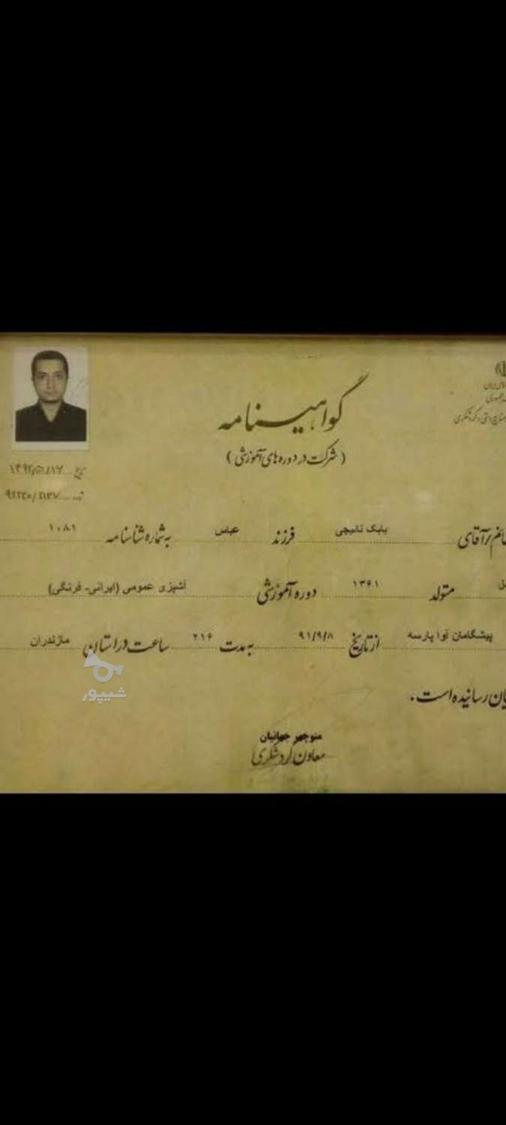 گواهینامه
( شرکت در دوره های آموزشی )
تاریخ
آقای بابک تائیچی فرزند عباس به شماره شناسنامه ۱۰۸۱
متولد ۱۳۶۱ دوره آموزشی آشپزی عمومی (ایرانی- فرنگی)
پیشگامان آوا پارسه از تاریخ ۹۱/۹/۸ به مدت ۲۱۶ ساعت در استان مازندران
رسانیده است .
منوچهر جهانیان
معاون گردشگری
شیپور